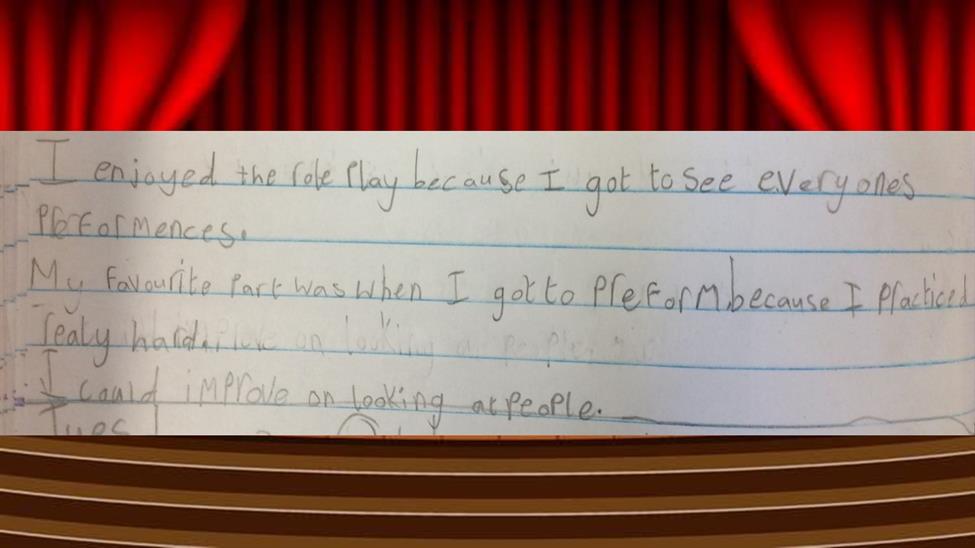 I enjoyed the role Play because I got to see everyones
PreForMences.
My Favourite Part was when I got to PreForM because I Practiced
realy hard.
I could improve on looking at People.